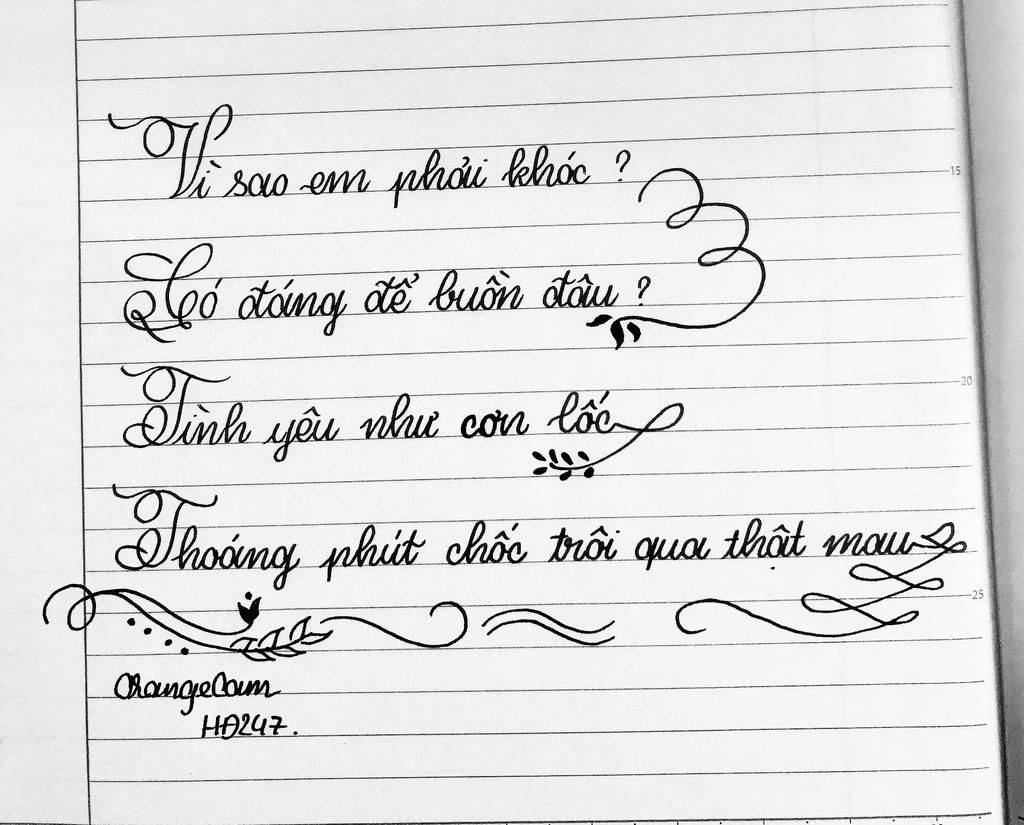 Vì sao em phải khóc ?
15
Có đáng để buồn đâu ?
20
Tình yêu như cơn lốc
Thoáng phút chốc trôi qua thật mau
25
OrangeCam
HĐ247.